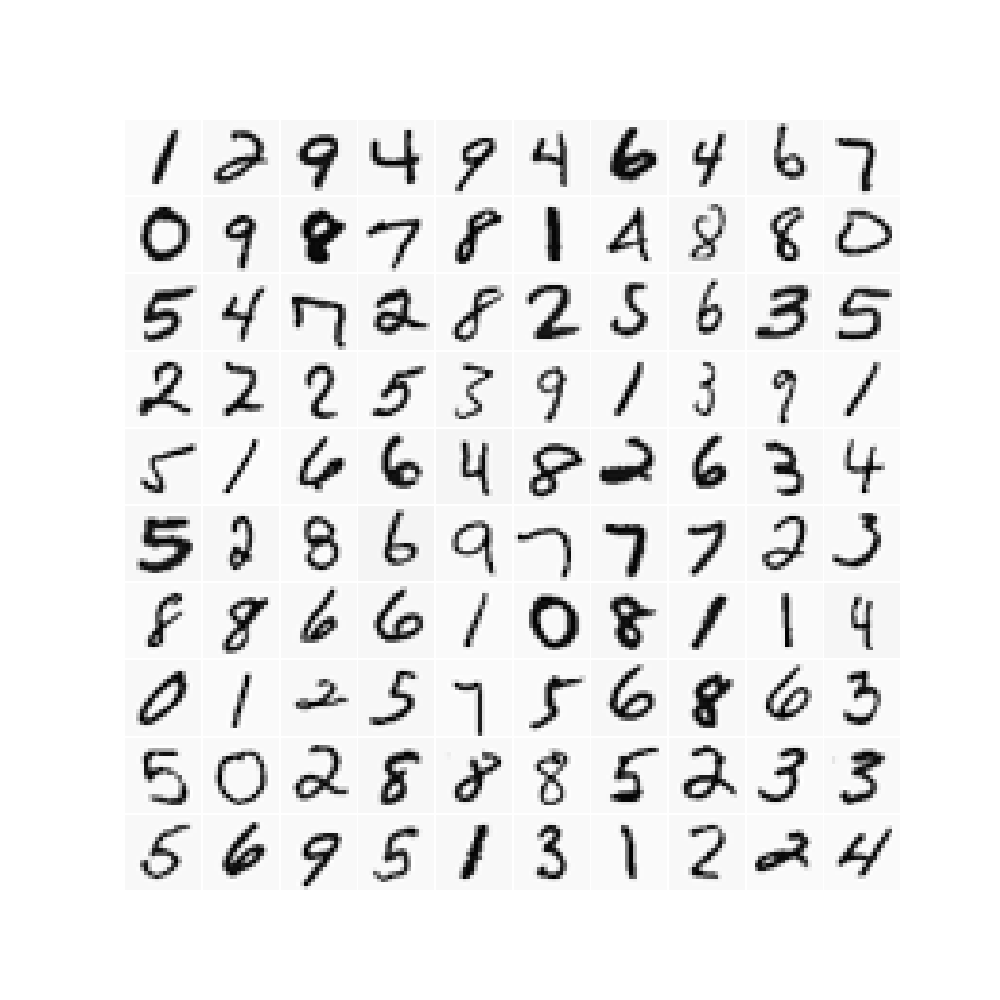 1 2 9 4 9 4 6 4 6 7
0 9 8 7 8 1 4 8 8 0
5 4 7 2 8 2 5 6 3 5
2 2 2 5 3 9 1 3 9 1
5 1 6 6 4 8 2 6 3 4
5 2 8 6 9 7 7 7 2 3
8 8 6 6 1 0 8 1 1 4
0 1 2 5 7 5 6 8 6 3
5 0 2 8 8 8 5 2 3 3
5 6 9 5 1 3 1 2 2 4